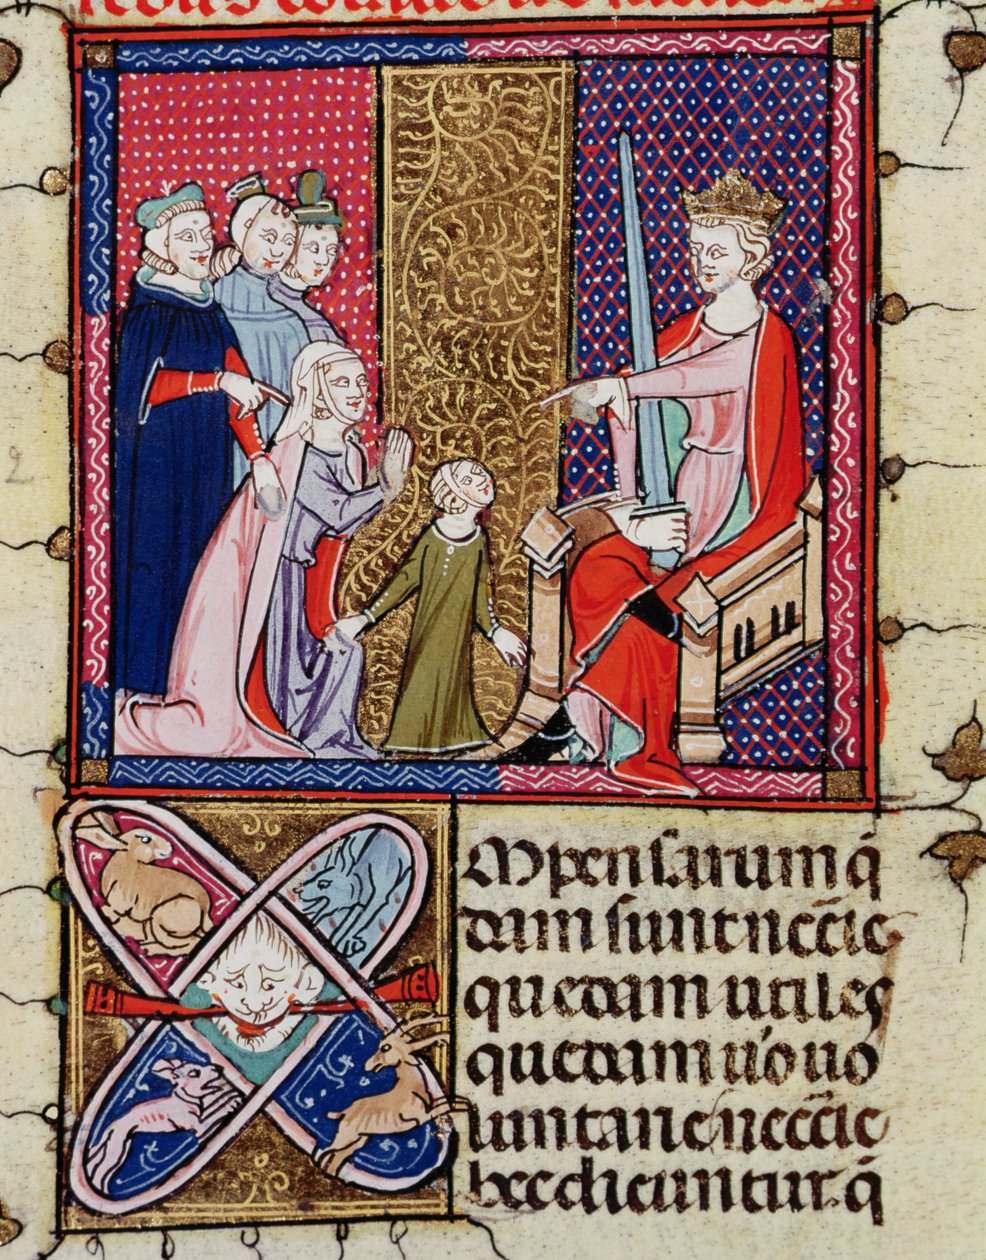 Mpensarum q̄
dam sunt necc̄ie
quedam utiles
quedam u'o uo
luntarie necc̄ie
hec dicuntur. q̄